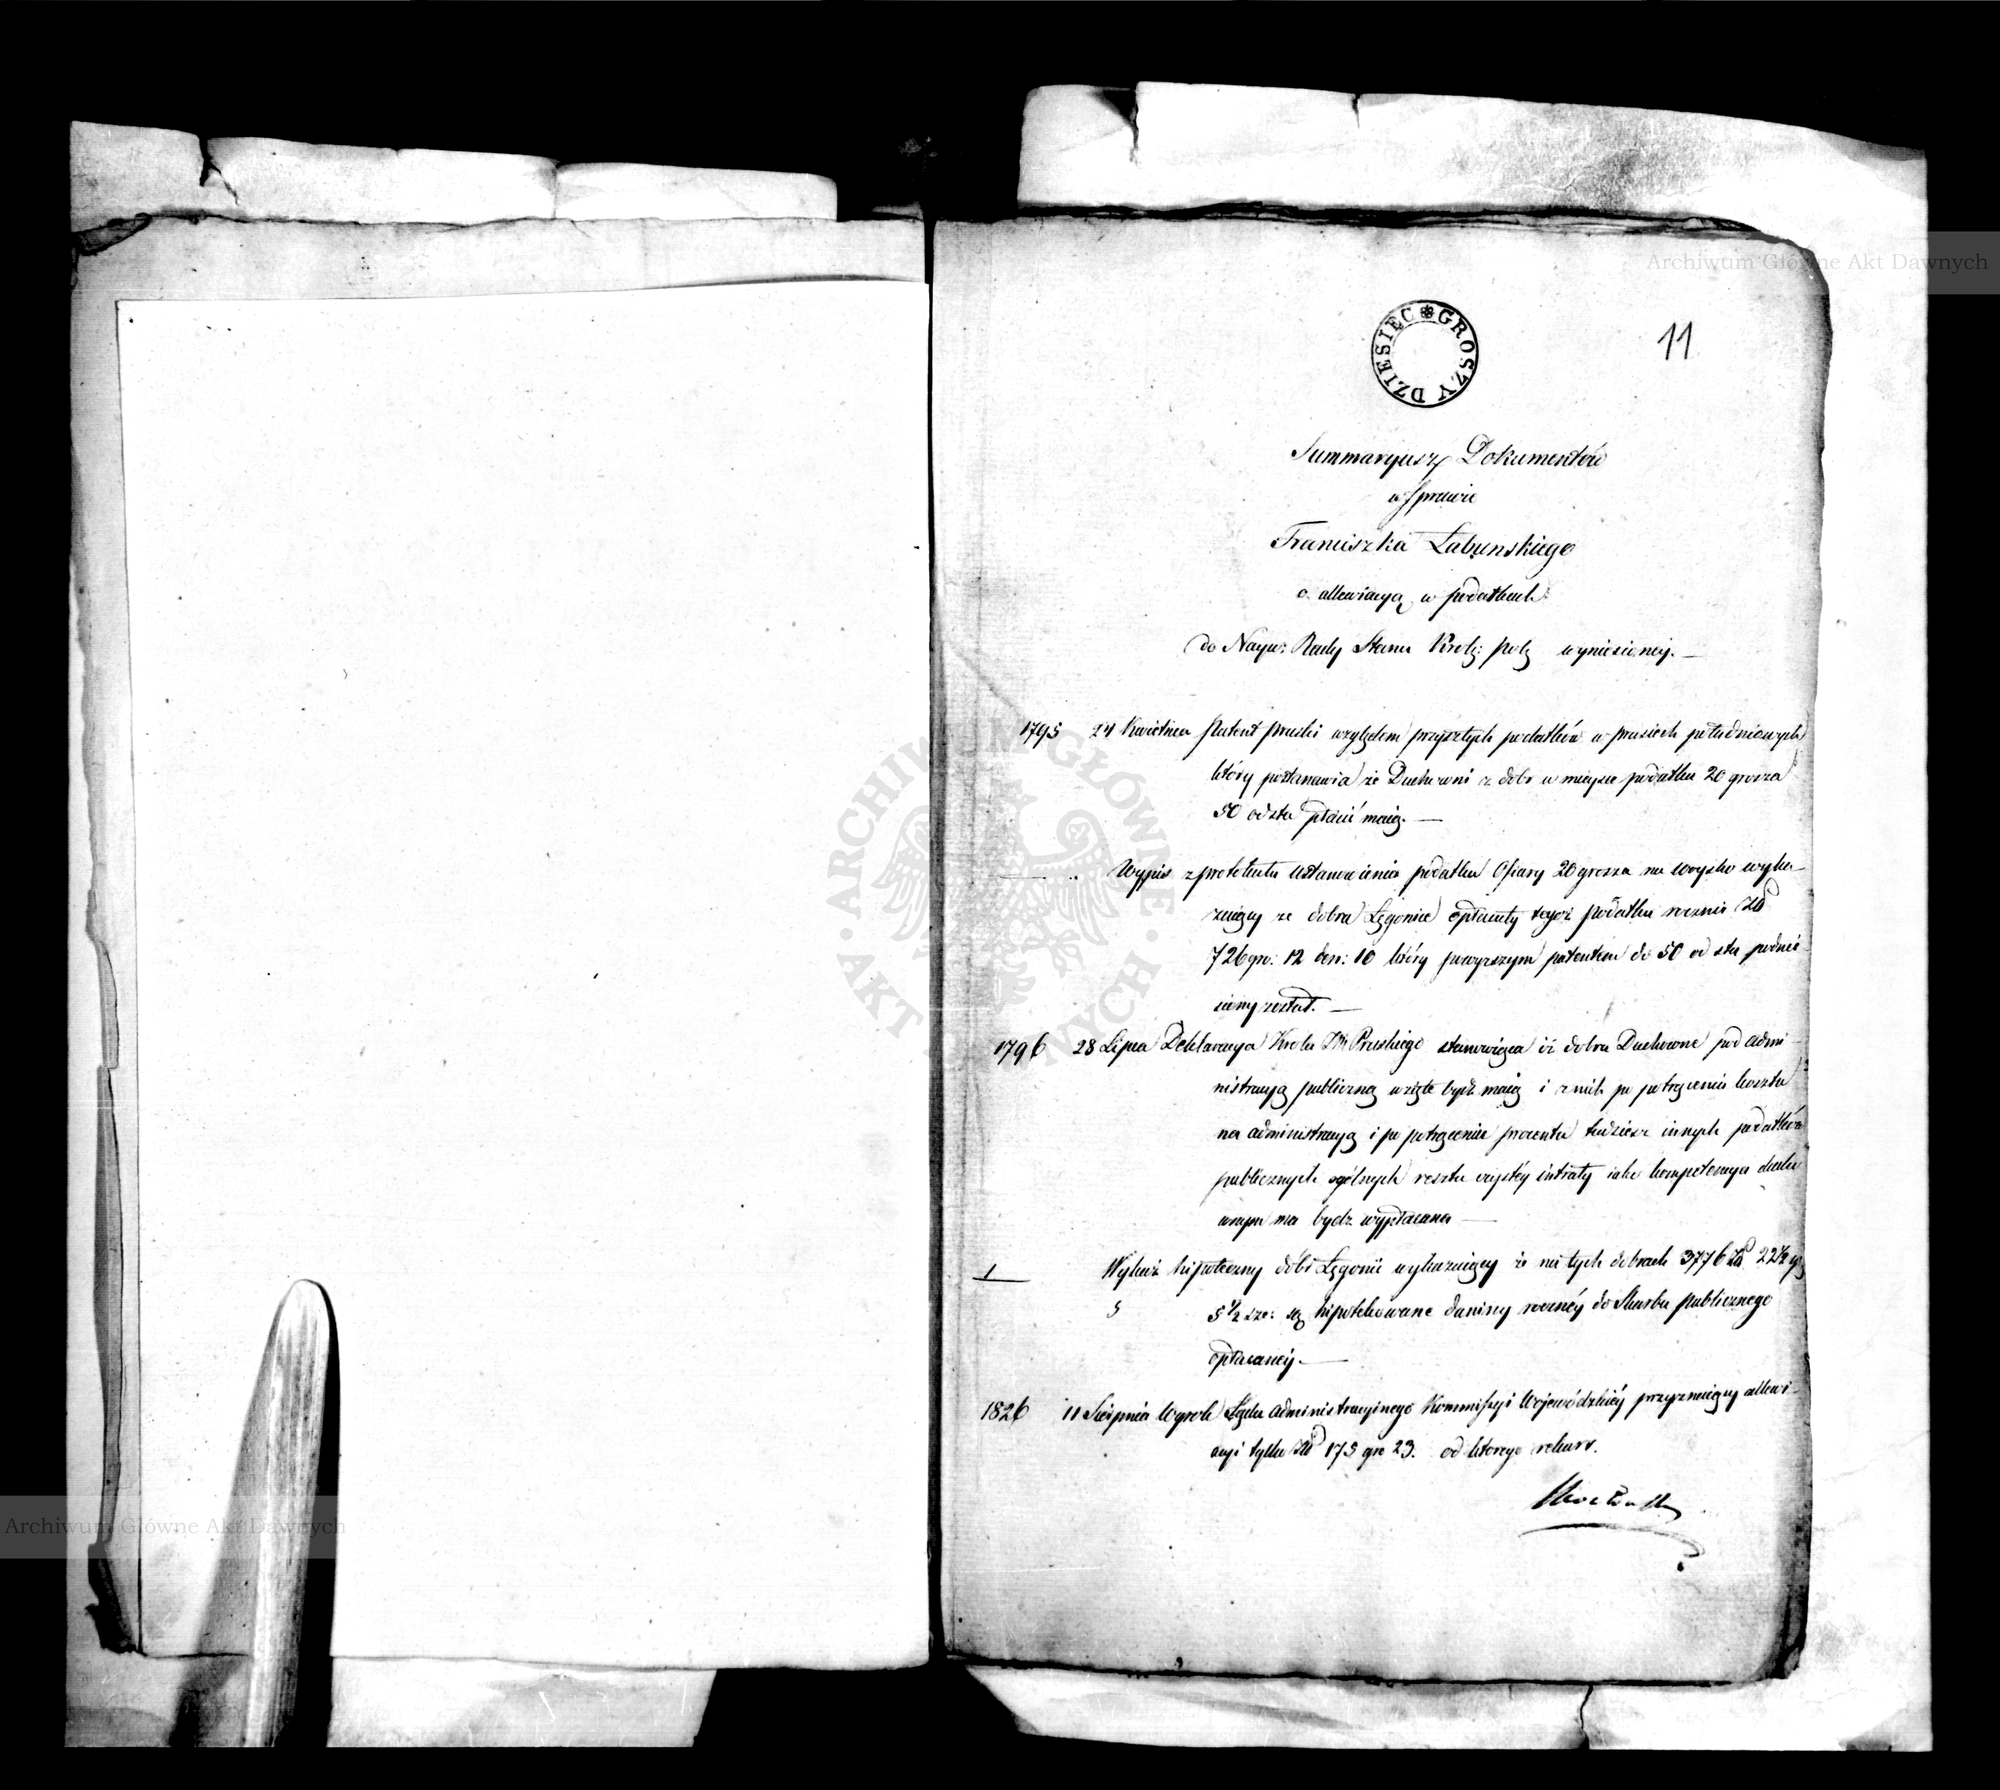 Archiwum Główne Akt Dawnych
DZIESIEC GROSZY
11
Summaryusz Dokumentów
w Sprawie
Franciszka Łabunskiego
o allewiacyą w podatkach
do Nayw: Rady Stanu Krolż: Polż wyniesioney. —
1795 24 Kwietnia Patent Pruski względem przyszłych podatków w prusiech południowych
który postanawia że Duchowni z dóbr w mieysce podatku 20 grosza
50 od sta płacić maią. —
— .. Wypis z protokułu ustanowienia podatku Ofiary 20 grosza na woysko wyka-
zuiący ze dobra Łęgonice opłacały tegoż podatku rocznie Złł
726 gr: 12 den: 10 który powyższym patentem do 50 od sta podnie-
siony został. —
1796 28 Lipca Deklaracya Krola Pruskiego stanowiąca iż dobra Duchowne pod admi-
nistracyą publiczną wzięte bydź maią i z nich po potrąceniu kosztu
na administracyą i po potrąceniu procentu tudzież innych podatków
publicznych ogólnych reszta czystéy intraty iako kompetencya ducho
wnym ma bydz wypłacana —
1 Wykaz hipoteczny dóbr Łęgonic wykazuiący że na tych dobrach 3776 Złł 22½ g
5 5½ sze: są hipotekowane daniny rocznéy do Skarbu publicznego
opłacanéy. —
1826 11 Sierpnia Wyrok Sądu administracyinego Kommissyi Woiewódzkiéy przyznaiący allewi-
acyi tylko Złł 175 gr 23. od ktorego rekurs.
ARCHIWUM GŁÓWNE AKT DAWNYCH
Archiwum Główne Akt Dawnych